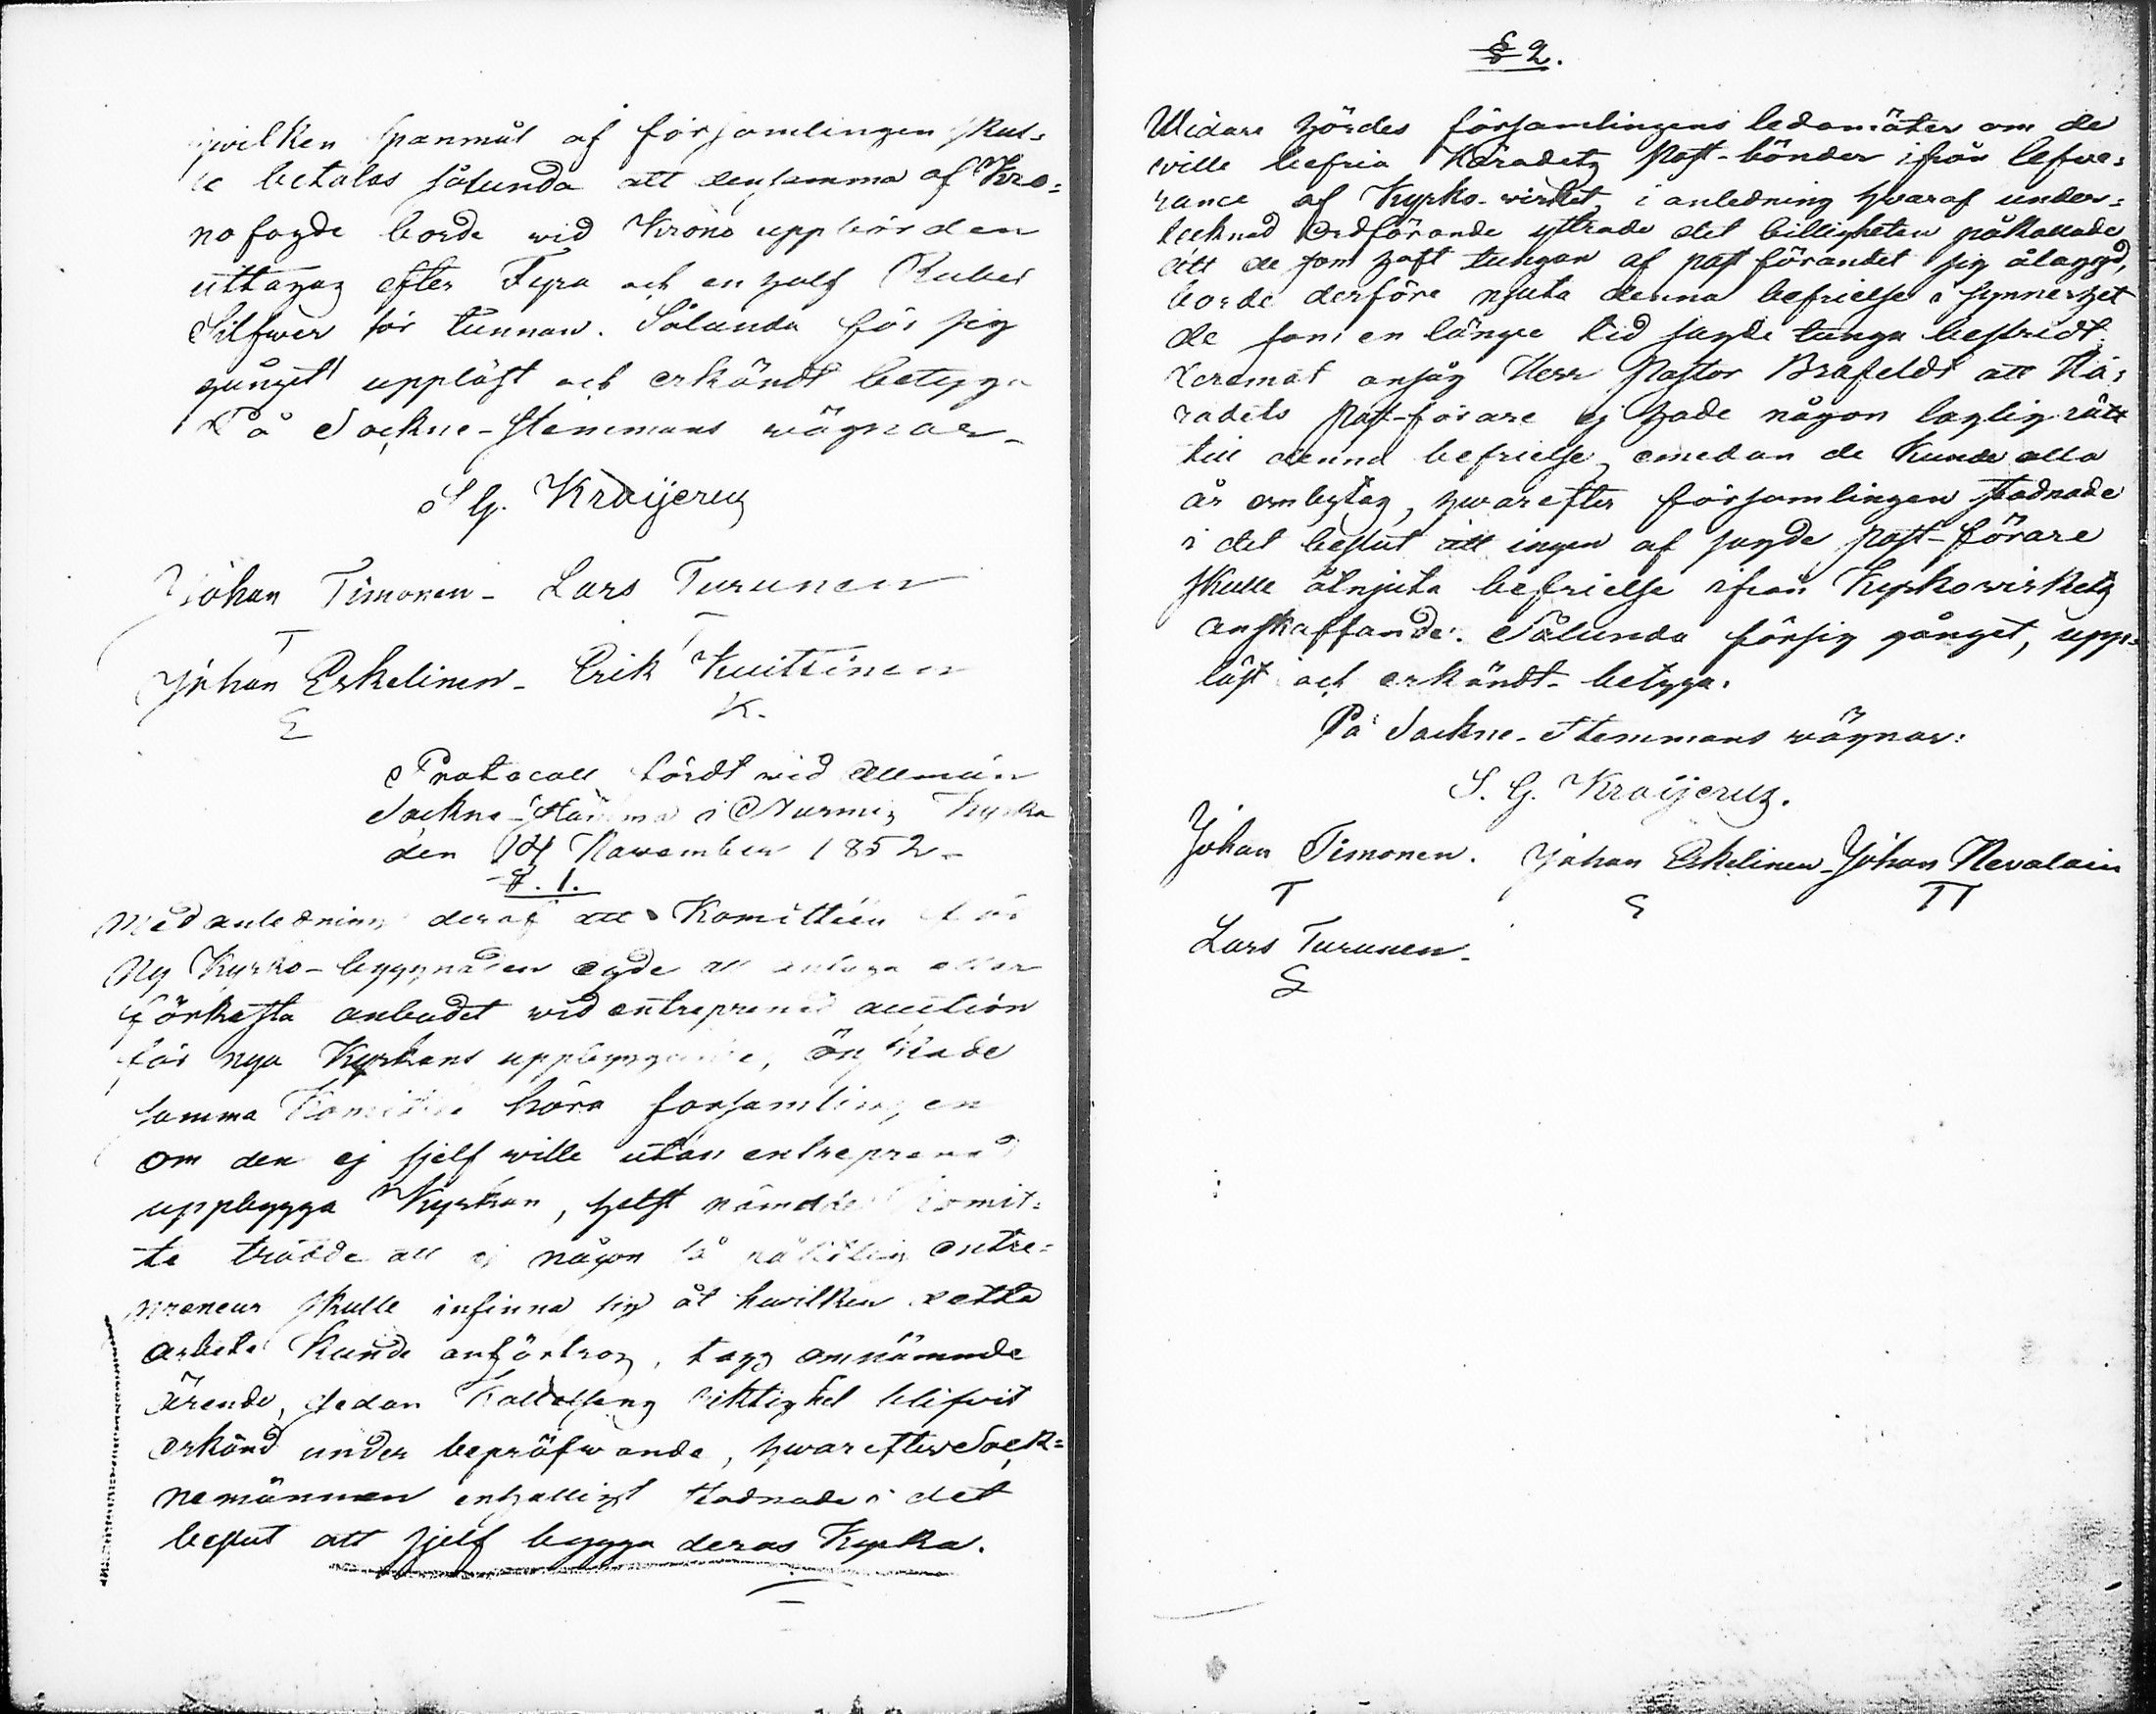 hvilken spanmål af församlingen skul=
le betalas sålunda att densamma af Kro=
nofogde borde vid Krono uppbörden
uttagas efter Fyra och en half Rubel
Silfwer för tunnan. Sålunda för sig
gånget uppläst och erkändt betyga
På Sockne-stemmans wägnar
S G. Kraijerus
Johan Timonen - Lars Turunen
T T
Johan Eskelinen - Erik Kuittinen
E K.
Protocoll fördt wid allmän
Sockne-Stämma i Nurmis Kyrka
den 14 November 1852 -
§. 1.
Med anledning deraf att Komitteen för
Ny Kyrko-byggnaden egde att antaga eller
förkasta anbudet wid entreprenad auction
för nya Kyrkans uppbyggande, önskade
samma Komitte höra församlingen
om den ej sjelf wille utan entreprenad
uppbygga Kyrkan, helst nämde Komit=
te trodde att ej någon så pålitlig entre=
preneur skulle infinna sig åt hwilken detta
arbete Kunde anförtros, togs omnämnde
ärende, sedan Kallelsens riktighet blifvit
erkänd under bepröfwande, hwarefter Sock=
nemännen enhälligt stadnade i det
beslut att sjelf bygga deras Kyrka.
§ 2.
Widare hördes församlingens ledamöter om de
ville befria Häradets Post-bönder ifrån lefve=
rance af Kyrko-wirket, i anledning hvaraf under=
tecknad Ordförande yttrade det billigheten påkallade
att de som haft tungan af post förandet sig ålaggd,
borde derföre njuta denna befrielse i synnerhet
de som en längre tid sagde tunga bestridt.
Deremot ansåg Herr Pastor Brafeldt att Hä=
radets Post-förare ej hade någon laglig rätt
till denna befrielse, emedan de Kunde alla
år ombytas, hwarefter församlingen stadnade
i det beslut att ingen af sagde post-förare
skulle åtnjuta befrielse ifrån Kyrkowirkets
anskaffande. Sålunda församling gånget, upp=
läst och erkändt - betyga.
På Sockne-Stemmans wägnar:
S. G. Kraijerus.
Johan Timonen. Johan Eskelinen - Johan Nevalain
T E TT
Lars Turunen -
L